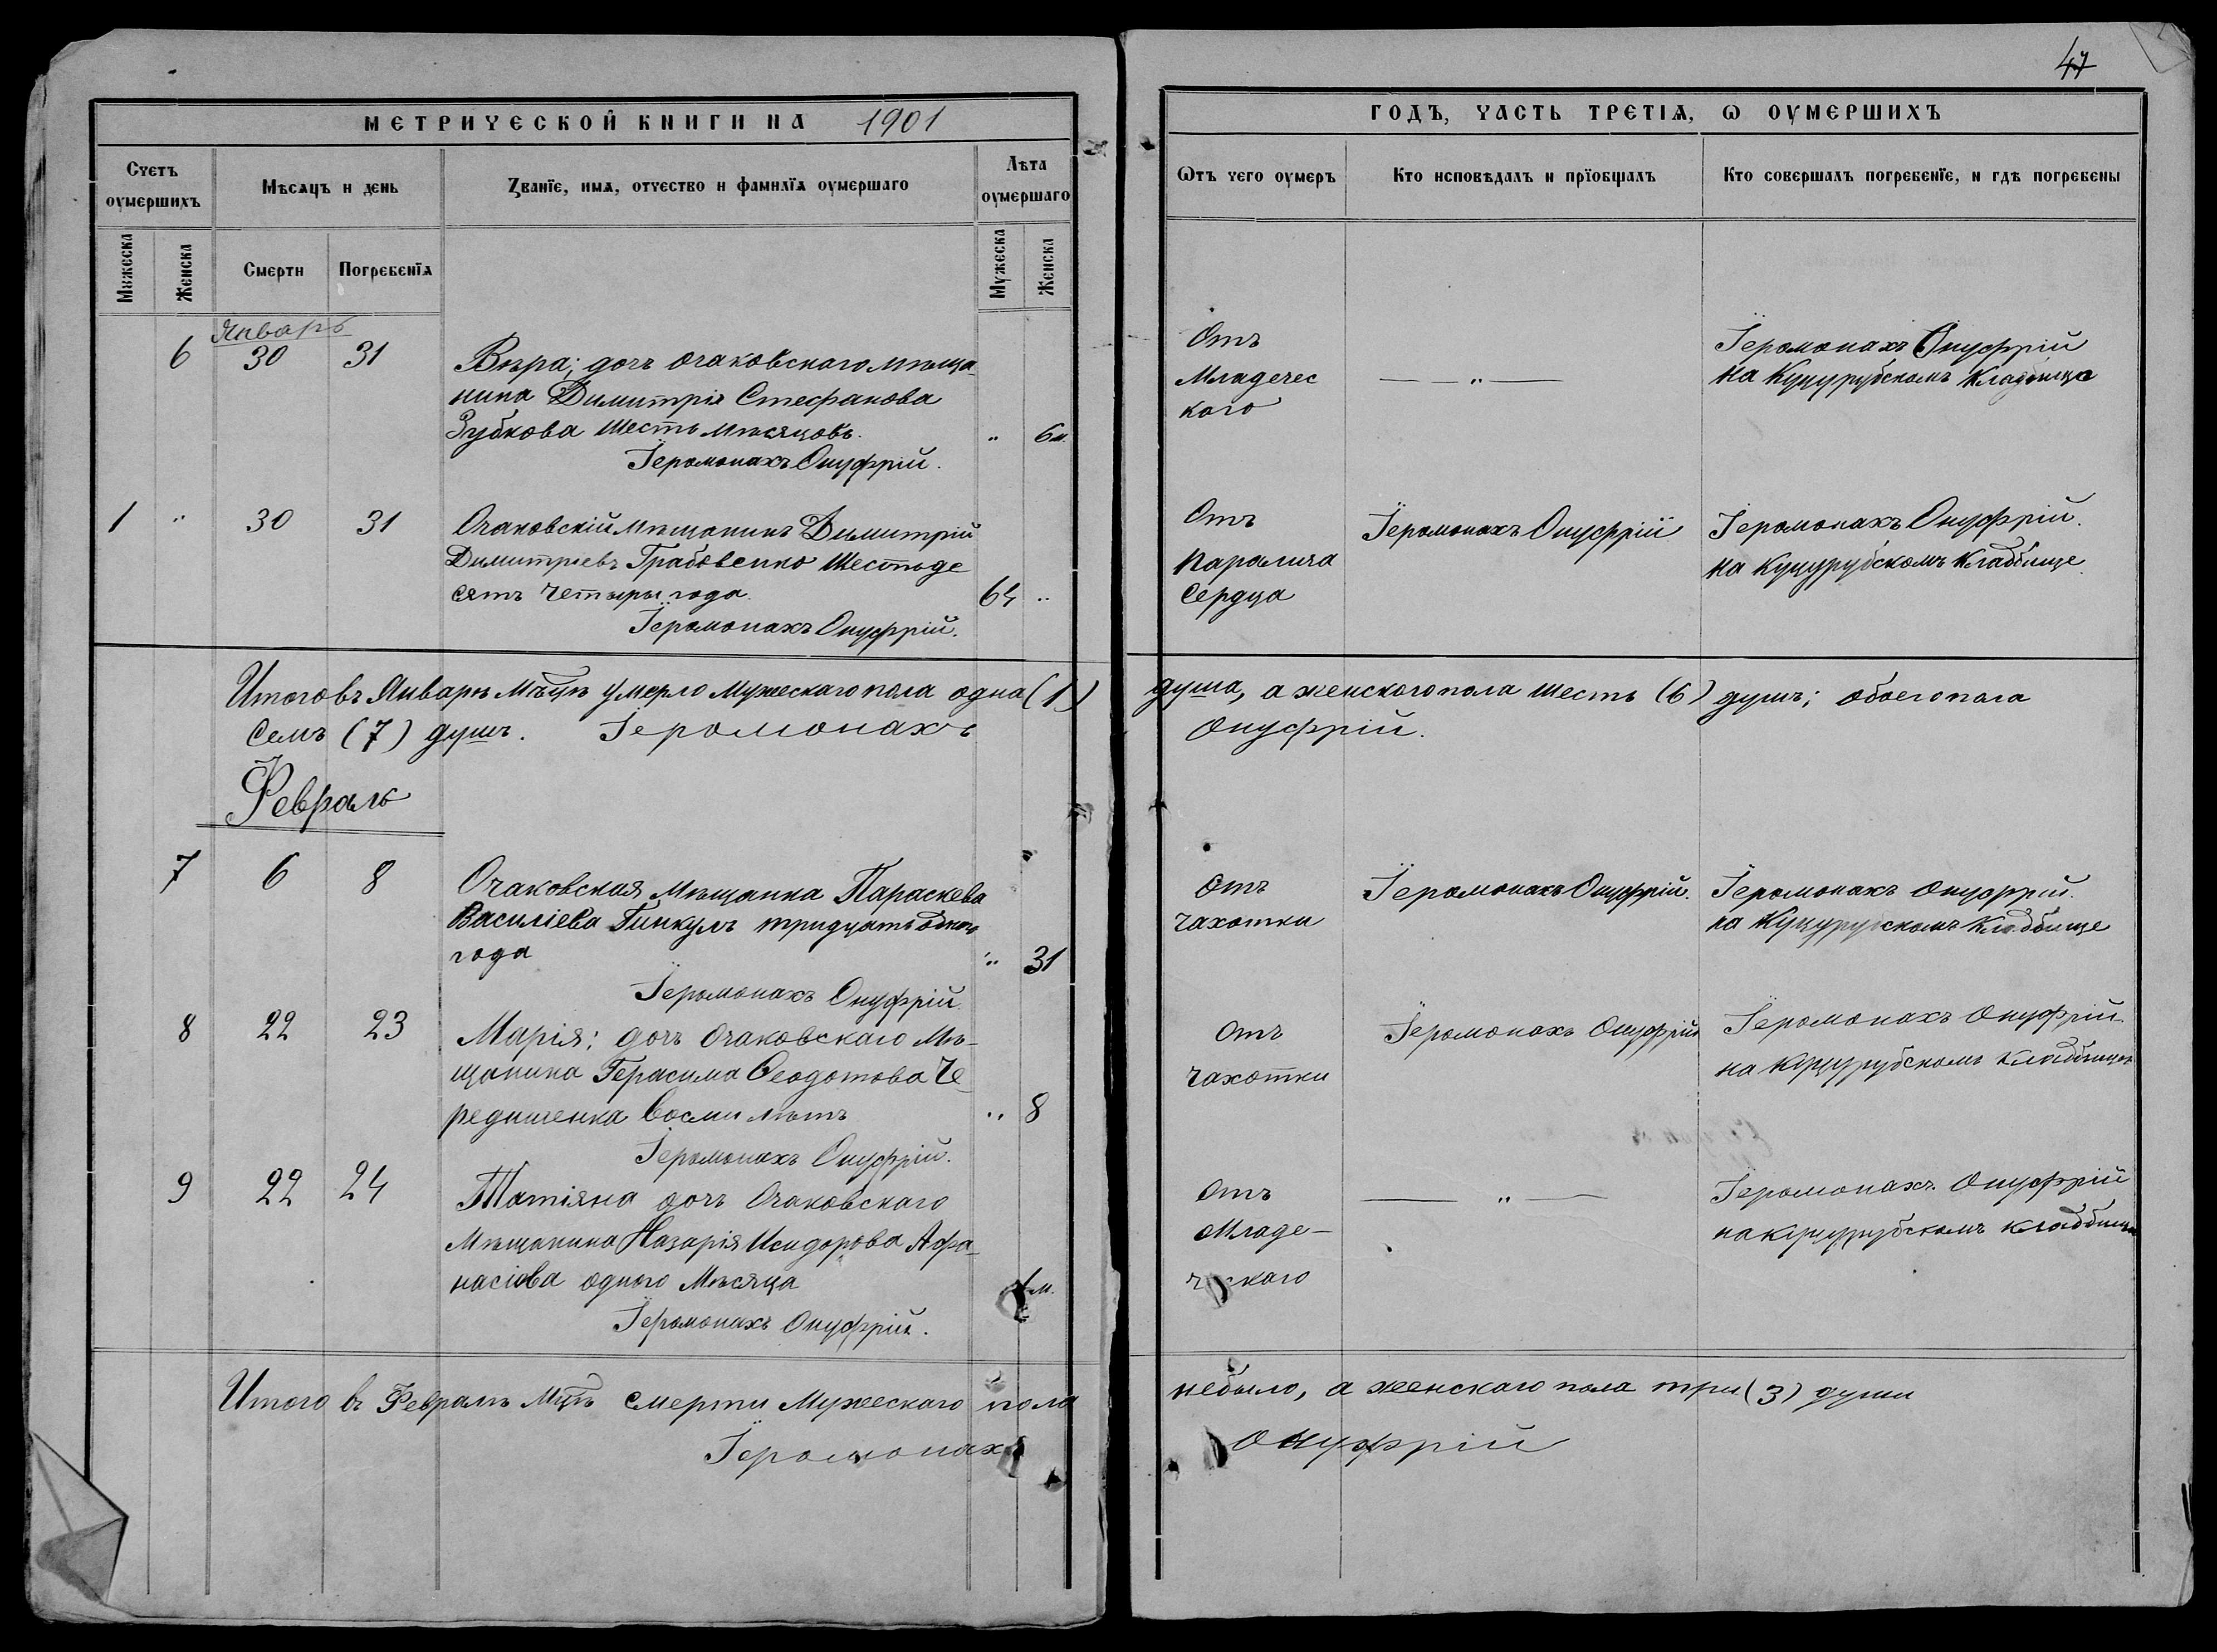 47
МЕТРИЧЕСКОЙ КНИГИ НА 1901
ГОДЪ, ЧАСТЬ ТРЕТІѦ, Ѡ ОУМЕРШИХЪ
Счетъ оумершихъ
Мѣсяцъ и день
Званїе, имѧ, отчество и фамилїѧ оумершаго
Лѣта оумершаго
Ѡтъ чего оумеръ
Кто исповѣдалъ и прїобщалъ
Кто совершалъ погребенїе, и гдѣ погребены
Мꙋжеска
Женска
Смерти
Погребенїѧ
Мужеска
Женска
Январь
6 30 31 Вѣра; дочь очаковскаго мѣща-
нина Димитрія Стефанова
Зубкова шесть мѣсяцовъ. „ 6 м.
Іеромонахъ Онуфрій.
Отъ
Младечес
кого
— „ —
Іеромонахъ Онуфрій
на Куцурубскомъ Кладбище
1 „ 30 31 Очаковскій мѣщанинъ Димитрій
Димитріевъ Грабовенко шестьде
сятъ четыры года. 64 „
Іеромонахъ Онуфрій.
Отъ
паралича
Сердца
Іеромонахъ Онуфрій
Іеромонахъ Онуфрій.
на Куцурубскомъ Кладбище
Итого въ Январѣ М-цѣ умерло мужескаго пола одна (1) душа, а женского пола шесть (6) душъ; обоего пола
семь (7) душъ. Іеромонахъ Онуфрій.
Февраль
7 6 8 Очаковская мѣщанка Параскева
Василіева Гинкулъ тридцать одного
года „ 31
Іеромонахъ Онуфрій.
Отъ
чахотки
Іеромонахъ Онуфрій.
Іеромонахъ Онуфрій.
на Куцурубскомъ Кладбище
8 22 23 Марія; дочь очаковскаго Мѣ-
щанина Герасима Ѳеодотова Че-
редниченка восми лѣтъ „ 8
Іеромонахъ Онуфрій.
Отъ
чахотки
Іеромонахъ Онуфрій
Іеромонахъ Онуфрій.
на Куцурубскомъ Кладбищѣ
9 22 24 Татіяна дочь Очаковскаго
Мѣщанина Назарія Исидорова Афа-
насіева одного Мѣсяца 1 м.
Іеромонахъ Онуфрій.
Отъ
Младе-
ческаго
— „ —
Іеромонахъ Онуфрій
на Куцурубскомъ Кладбище
Итого въ Февралѣ М-цѣ смерти Мужескаго пола небыло, а женскаго пола три (3) души
Іеромонахъ Онуфрій